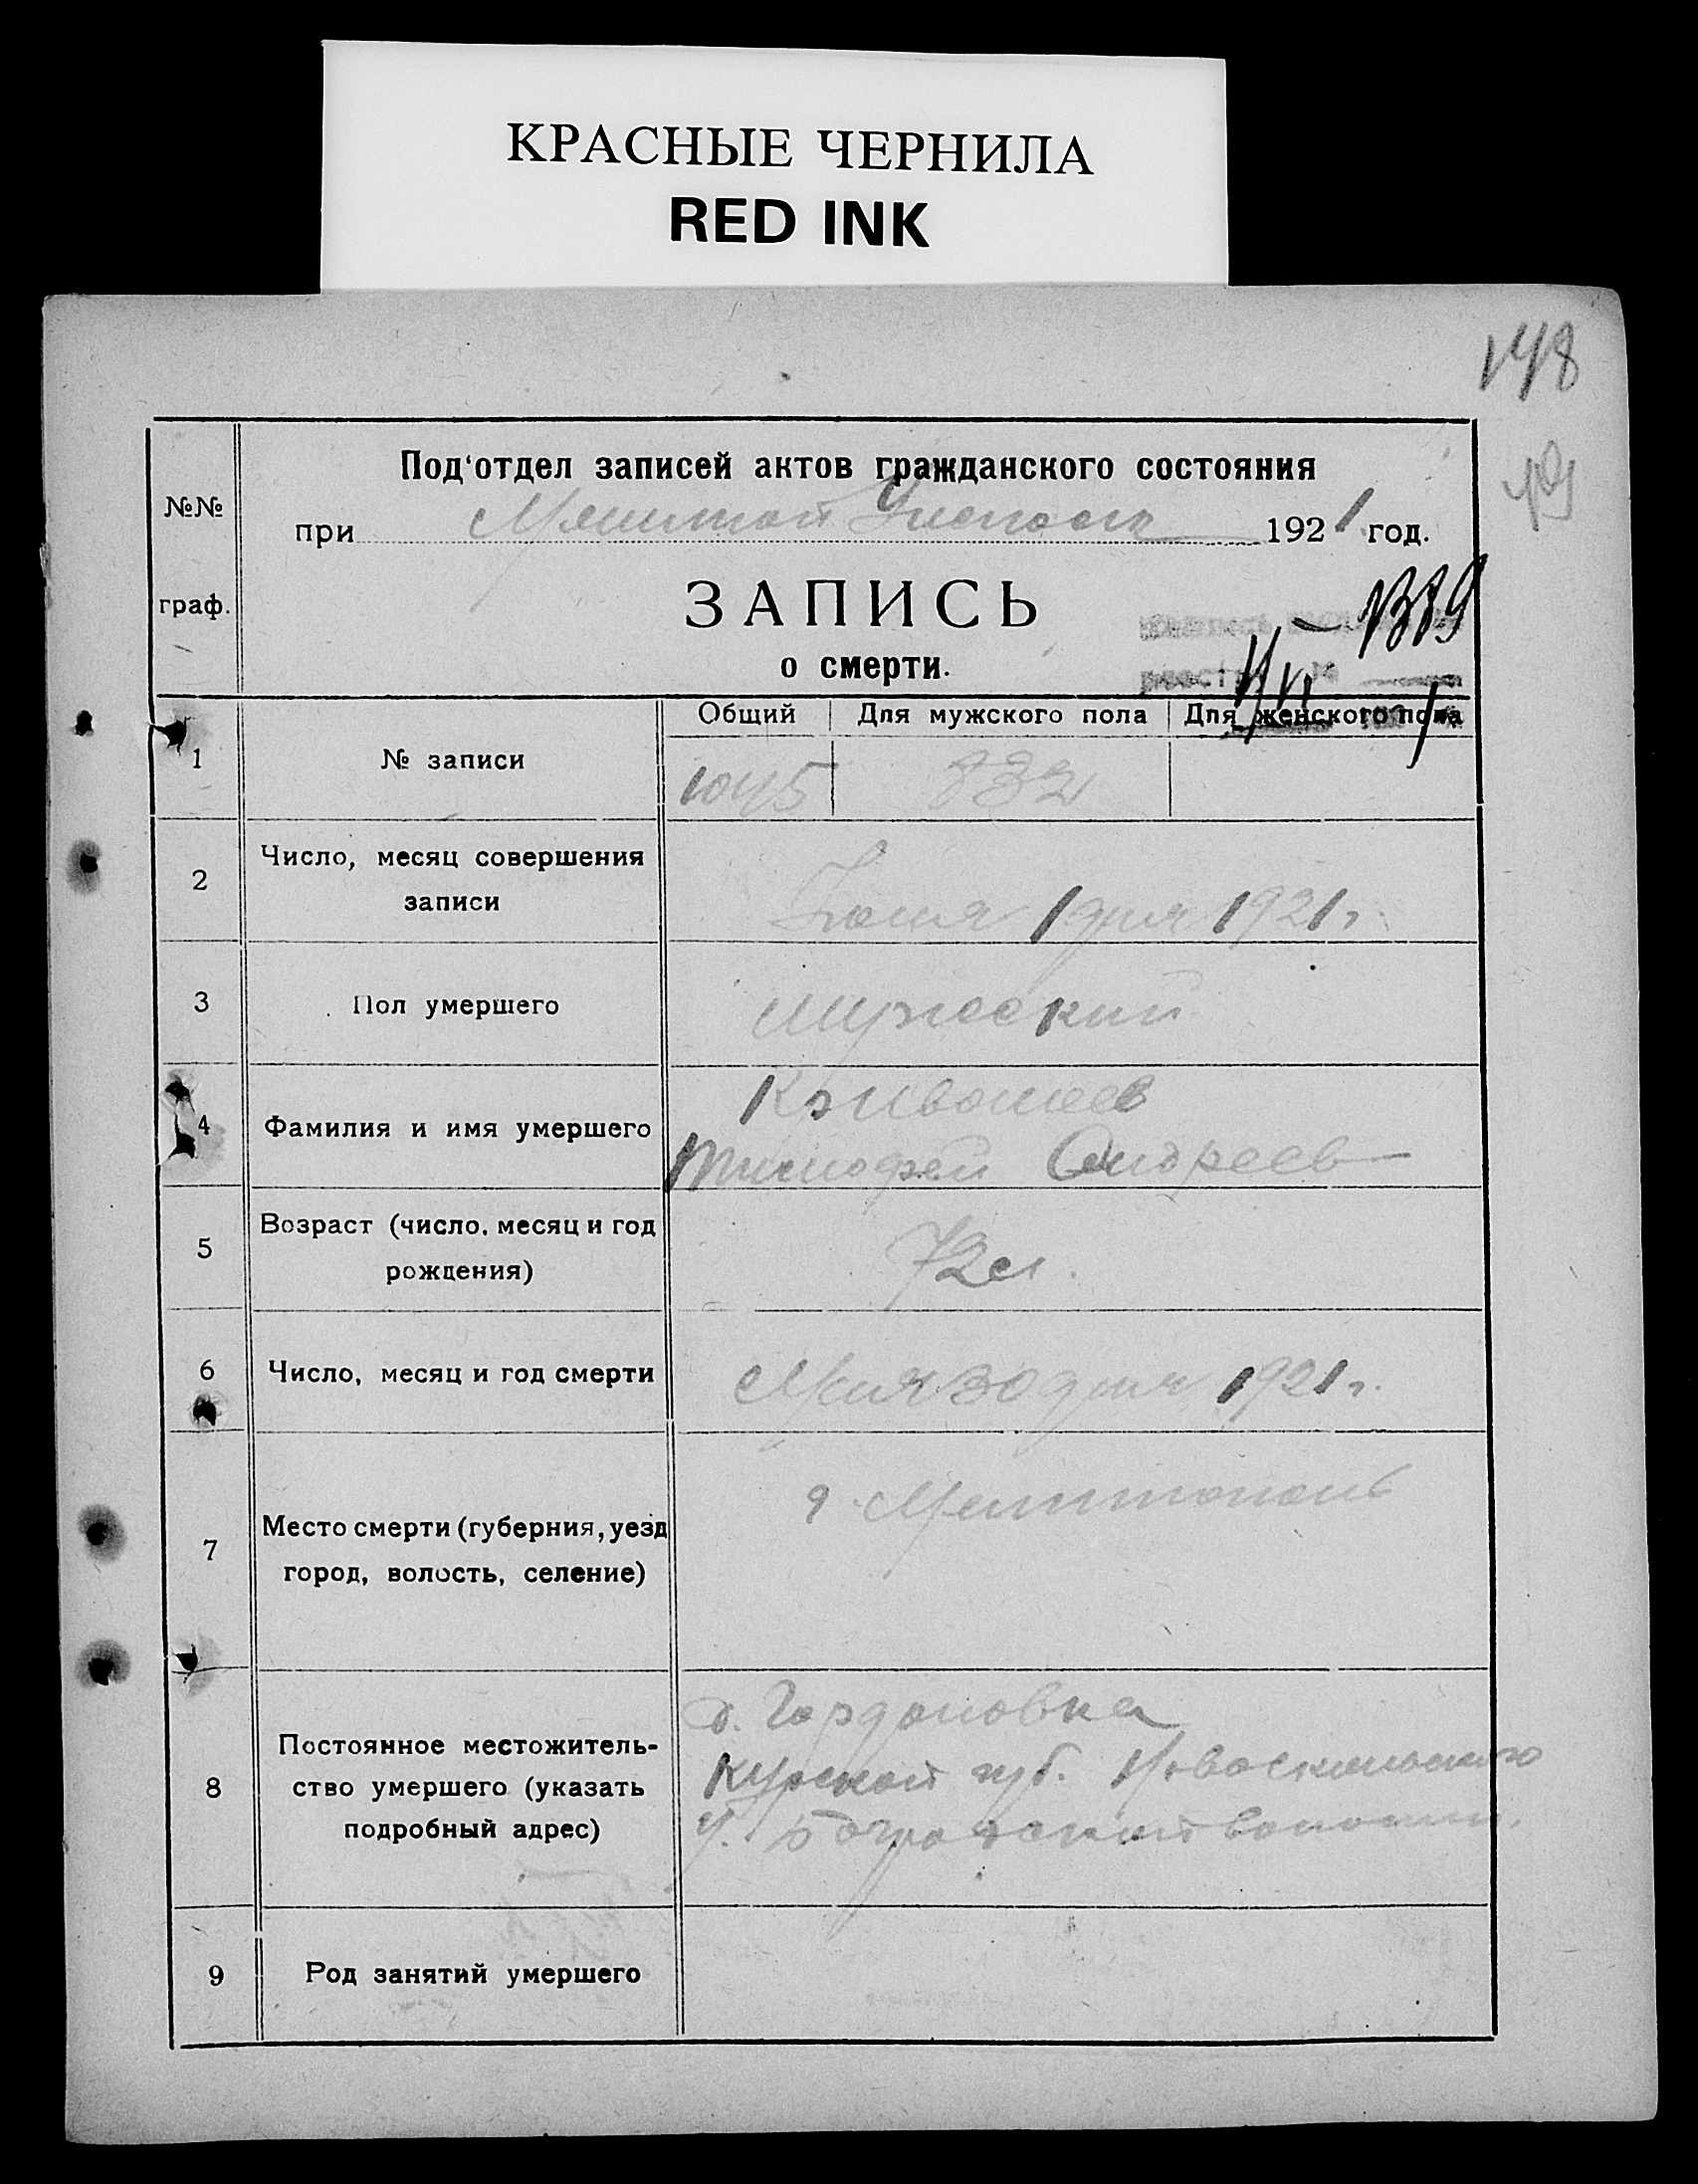 КРАСНЫЕ ЧЕРНИЛА
RED INK
148
№№ граф.
Под‘отдел записей актов гражданского состояния
при 1921 год.
ЗАПИСЬ
о смерти.
Общий Для мужского пола Для женского пола
1 № записи 1045 832
2 Число, месяц совершения записи 1 дня 1921 г.
3 Пол умершего мужеский
4 Фамилия и имя умершего Кривошеев
Тимофей Андреев
5 Возраст (число, месяц и год рождения) 72 л.
6 Число, месяц и год смерти Мая 30 дня 1921 г.
7 Место смерти (губерния, уезд город, волость, селение) г. Мелитополь
8 Постоянное местожитель-
ство умершего (указать
подробный адрес)
д. Гордоновка
Курской губ. Новооскольского
у. волости.
9 Род занятий умершего